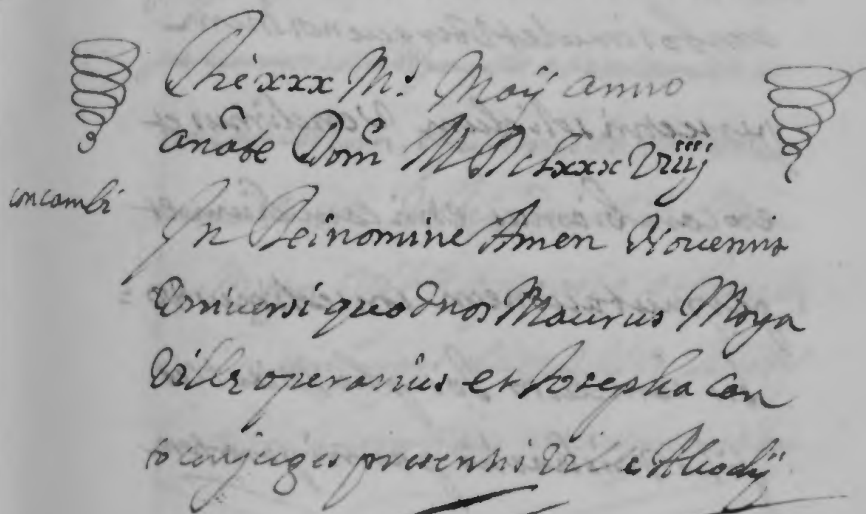 Die xxx M.s Maij anno
a nāte Dom̄ M Dclxxx Viiij
concambi
In Dei nomine Amen Noverint
Universi quod nos Maurus Moya
Ville operarius et Josepha Can
to conjuges presentis Ville Alcodij